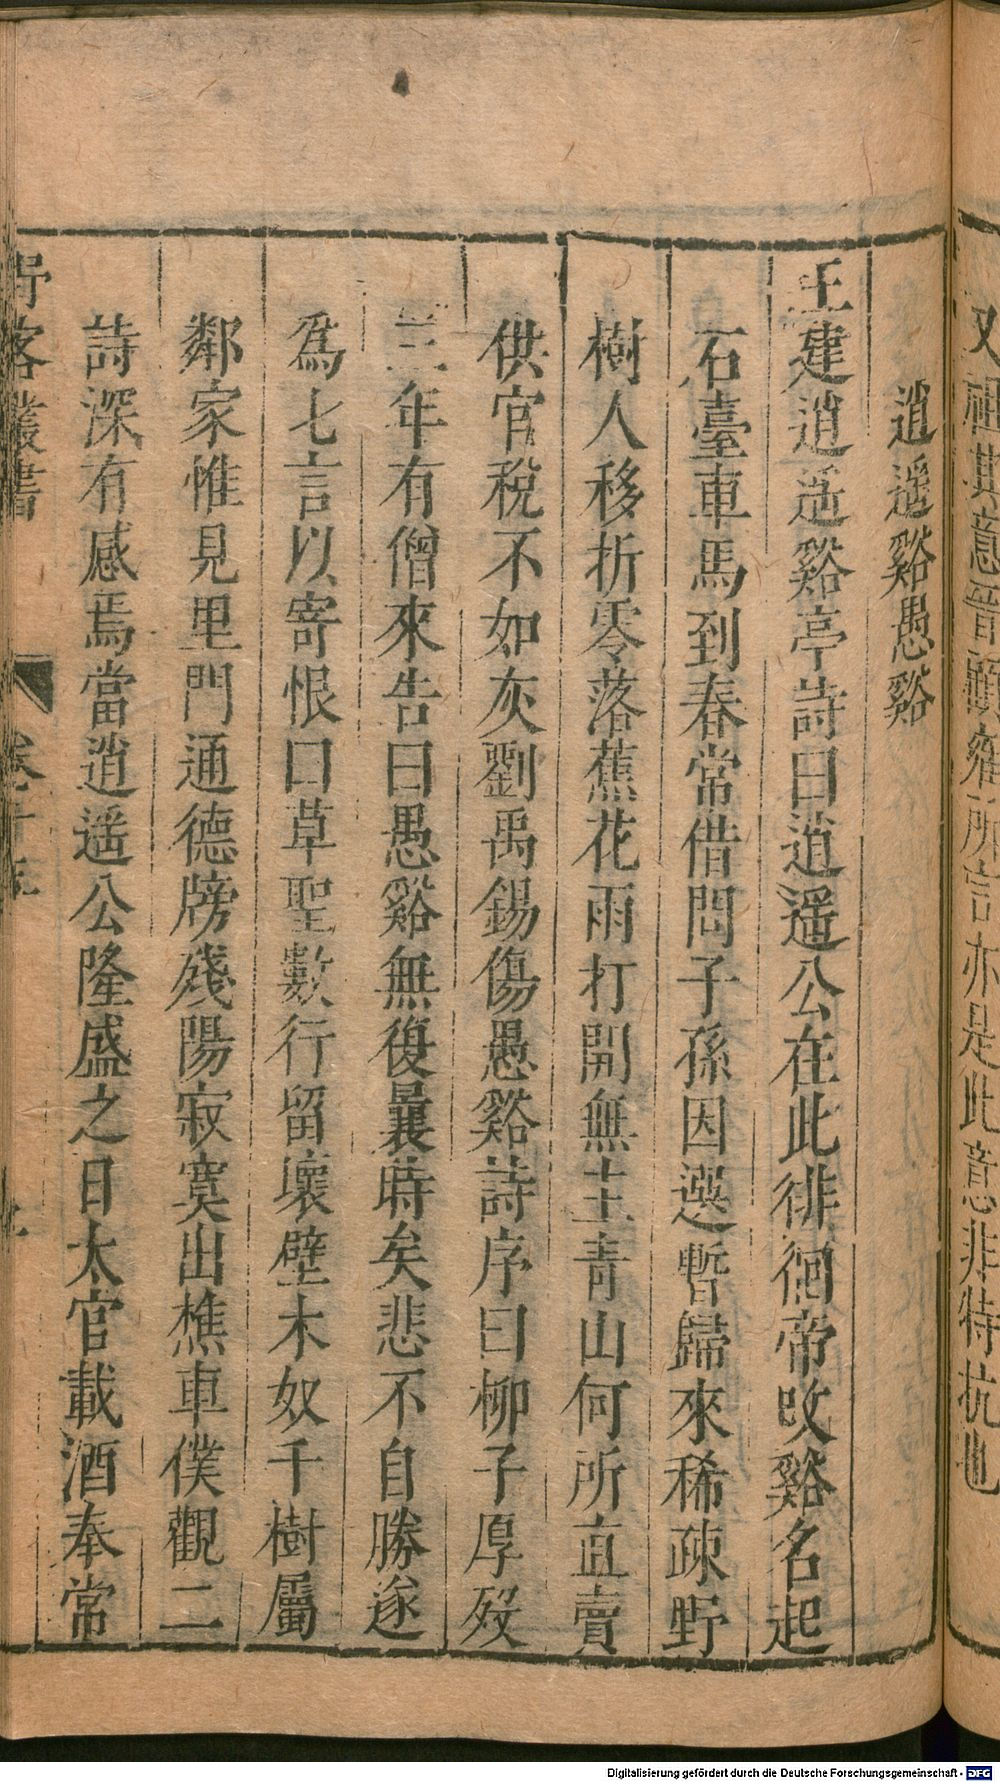 又祖其意晉顧雍所言亦是此意非特抗也
逍遙谿愚谿
王建逍遥谿亭詩曰逍遥公在此徘徊帝改谿名起
石臺車馬到春常借問子孫因選暫歸來稀疎野
樹人移折零落蕉花雨打開無主青山何所直賣
供官税不如灰劉禹錫傷愚谿詩序曰柳子厚殁
三年有僧來告曰愚谿無復曩時矣悲不自勝遂
爲七言以寄恨曰草聖數行留壞壁木奴千樹屬
鄰家惟見里門通德牓殘陽寂寞出樵車僕觀二
詩深有感焉當逍遥公隆盛之日太官載酒奉常
野客叢書
卷十五
Digitalisierung gefördert durch die Deutsche Forschungsgemeinschaft - DFG